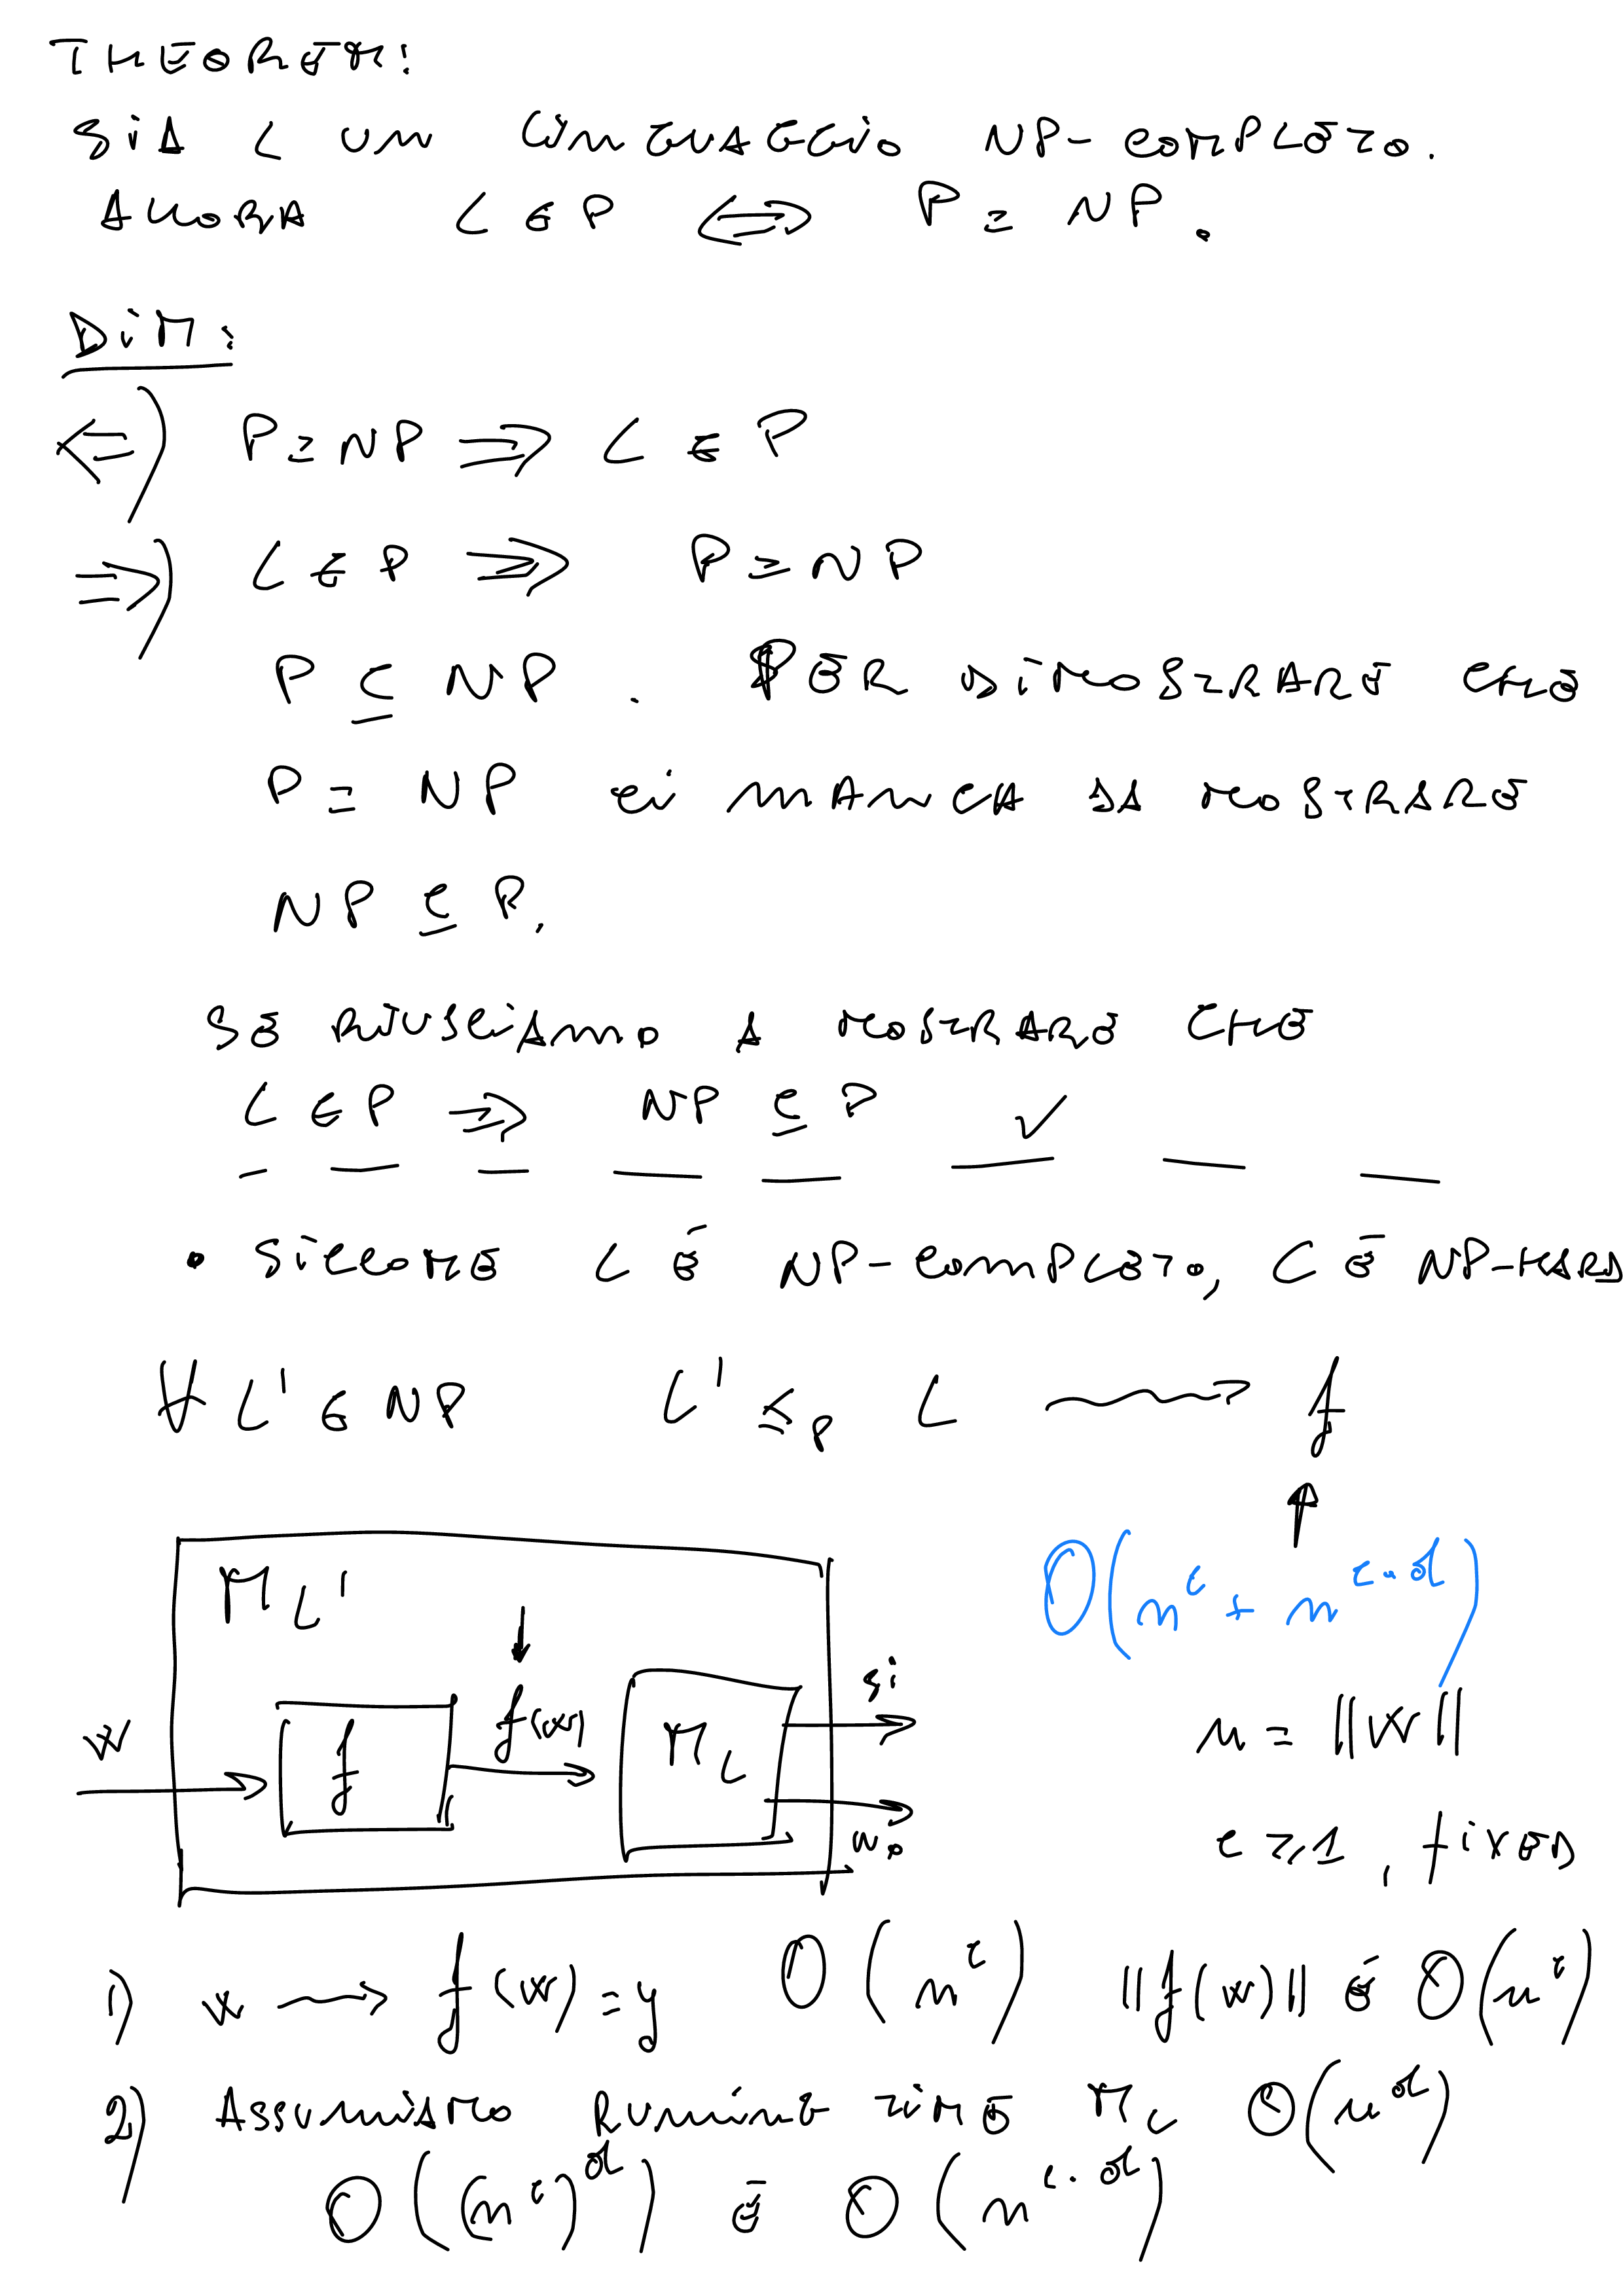 THEOREM:
SIA L UN LINGUAGGIO NP-COMPLETO.
ALLORA L ∈ P ⟺ P = NP.
DIM:
⟸) P = NP ⟹ L ∈ P
⟹) L ∈ P ⟹ P = NP
P ⊆ NP . PER DIMOSTRARE CHE
P = NP CI MANCA DA MOSTRARE
NP ⊆ P.
SE RIUSCIAMO A MOSTRARE CHE
L ∈ P ⟹ NP ⊆ P ✓
• SICCOME L È NP-COMPLETO, L È NP-HARD
∀ L' ∈ NP L' ≤p L ⟶ f
↑
O(n^c + n^{c·d})
M_L'
w f f(w) M_L si
no
n = ||w||
c ≥ 1, fixed
1) w ⟶ f(w) = y O(n^c) ||f(w)|| è O(n^c)
2) ASSUMIAMO RUNNING TIME M_L O(n^d)
O((n^c)^d) è O(n^{c·d})